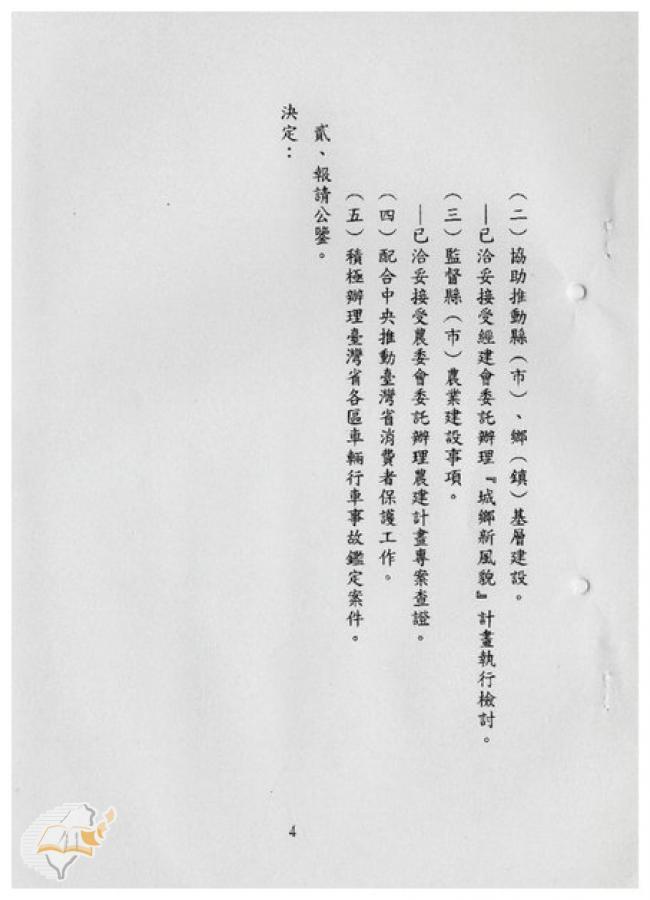 （二）協助推動縣（市）、鄉（鎮）基層建設。
—已洽妥接受經建會委託辦理『城鄉新風貌』計畫執行檢討。
（三）監督縣（市）農業建設事項。
—已洽妥接受農委會委託辦理農建計畫專案查證。
（四）配合中央推動臺灣省消費者保護工作。
（五）積極辦理臺灣省各區車輛行車事故鑑定案件。
貳、報請公鑒。
決定：
4